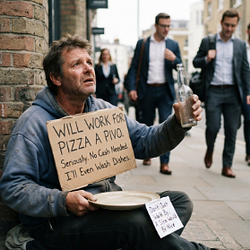 WILL WORK FOR
PIZZA A PIVO.
Seriously, No Cash Needed.
I'll Even Wash Dishes.
Don't Just
Walk By